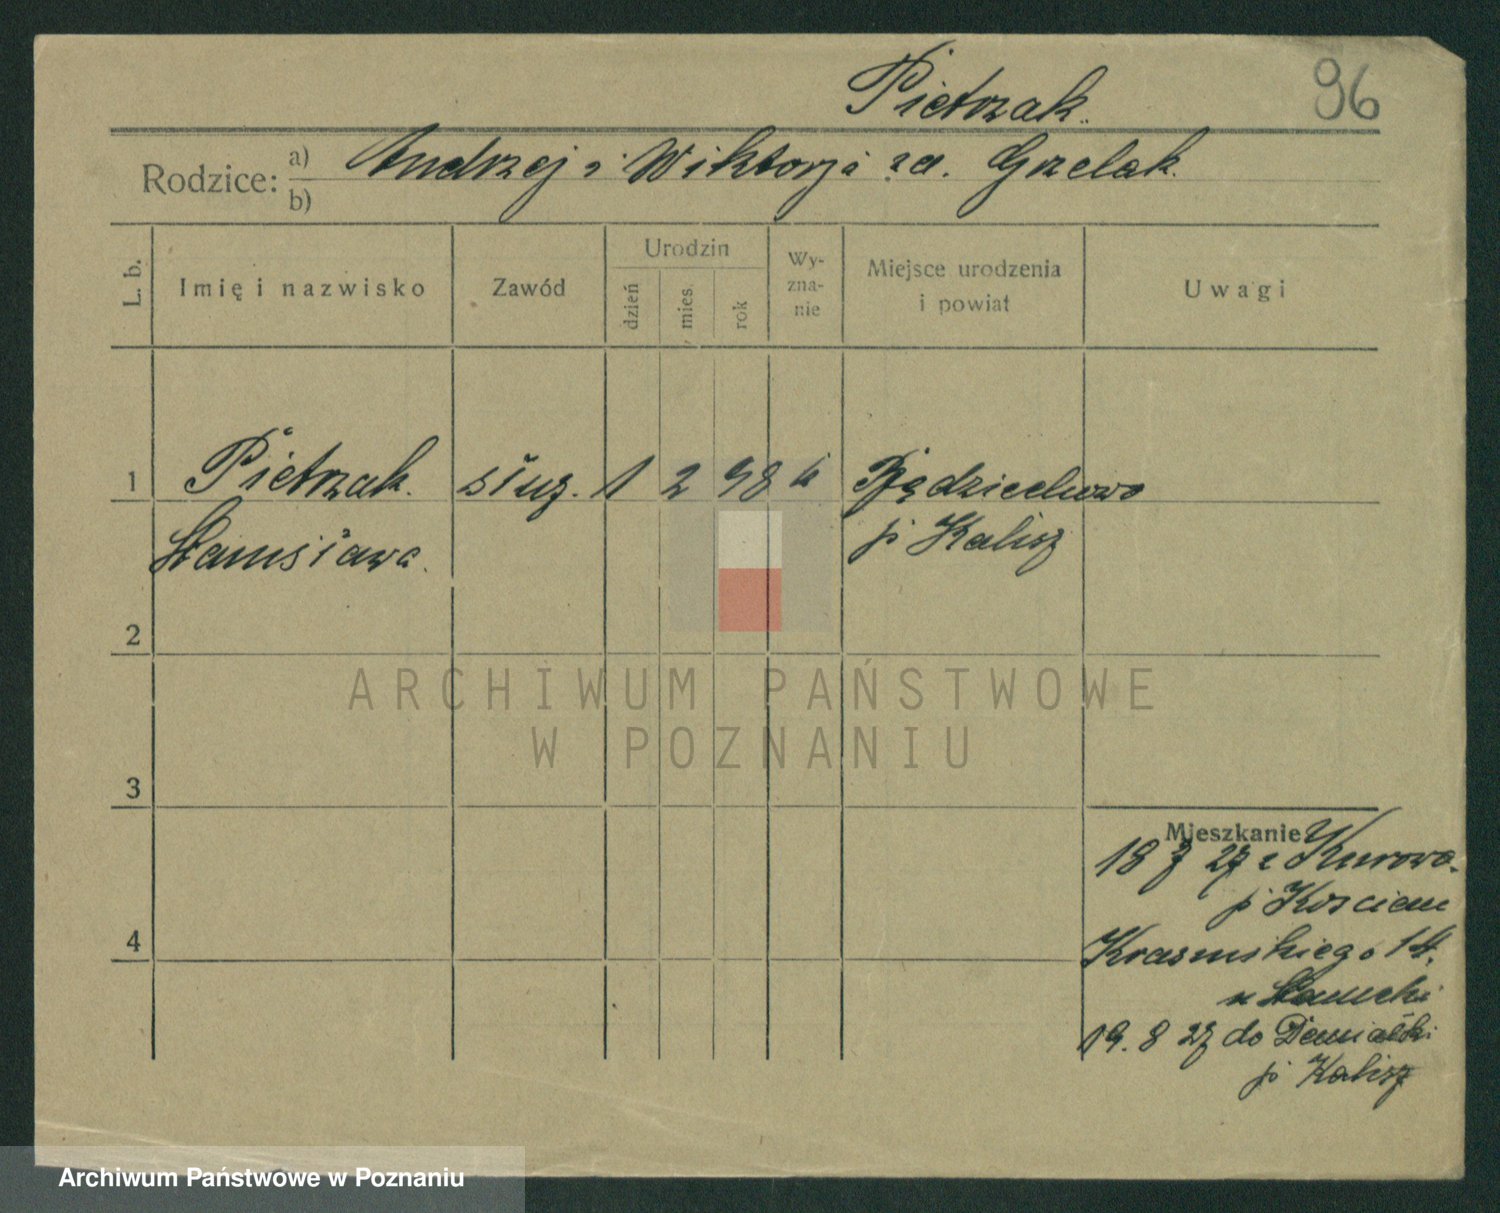 96
Pietrzak.
Rodzice: a) Andrzej i Wiktorja za. Grzelak.
b)
L. b.
Imię i nazwisko
Zawód
Urodzin
dzień
mies.
rok
Wy-
zna-
nie
Miejsce urodzenia
i powiat
Uwagi
1 Pietrzak. służ. 1 2 98 k Będziechowo
Stanisława. p. Kalisz
2
3
4
Mieszkanie
18 7 27 z Kurowo.
p. Kościan
Krasińskiego 14.
u
19. 8 27 do
p. Kalisz
ARCHIWUM PAŃSTWOWE
W POZNANIU
Archiwum Państwowe w Poznaniu